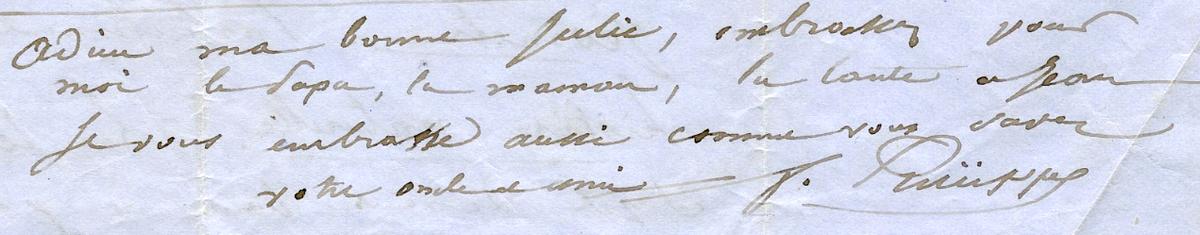 Adieu ma bonne Julie, embrassez pour
moi le papa, la maman, la tante et Jean
Je vous embrasse aussi comme vous savez
votre oncle et ami J. Philippe